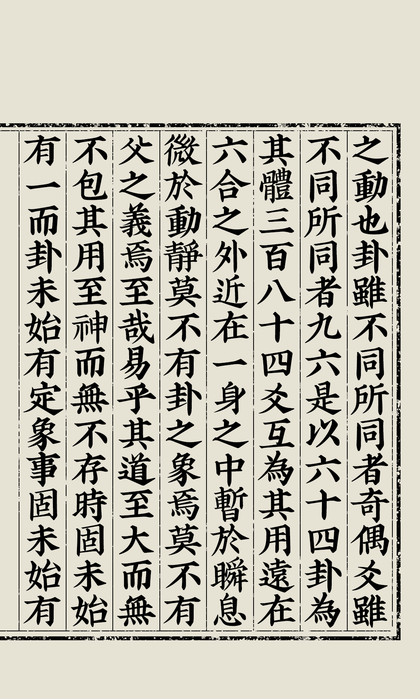 之動也卦雖不同所同者奇偶爻雖
不同所同者九六是以六十四卦為
其體三百八十四爻互為其用遠在
六合之外近在一身之中暫於瞬息
微於動靜莫不有卦之象焉莫不有
爻之義焉至哉易乎其道至大而無
不包其用至神而無不存時固未始
有一而卦未始有定象事固未始有